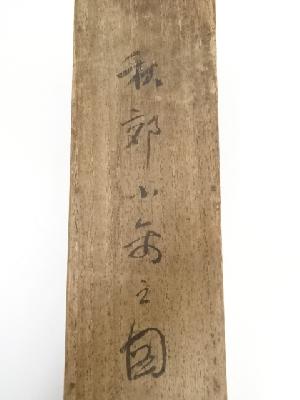 秋郊小禽之図